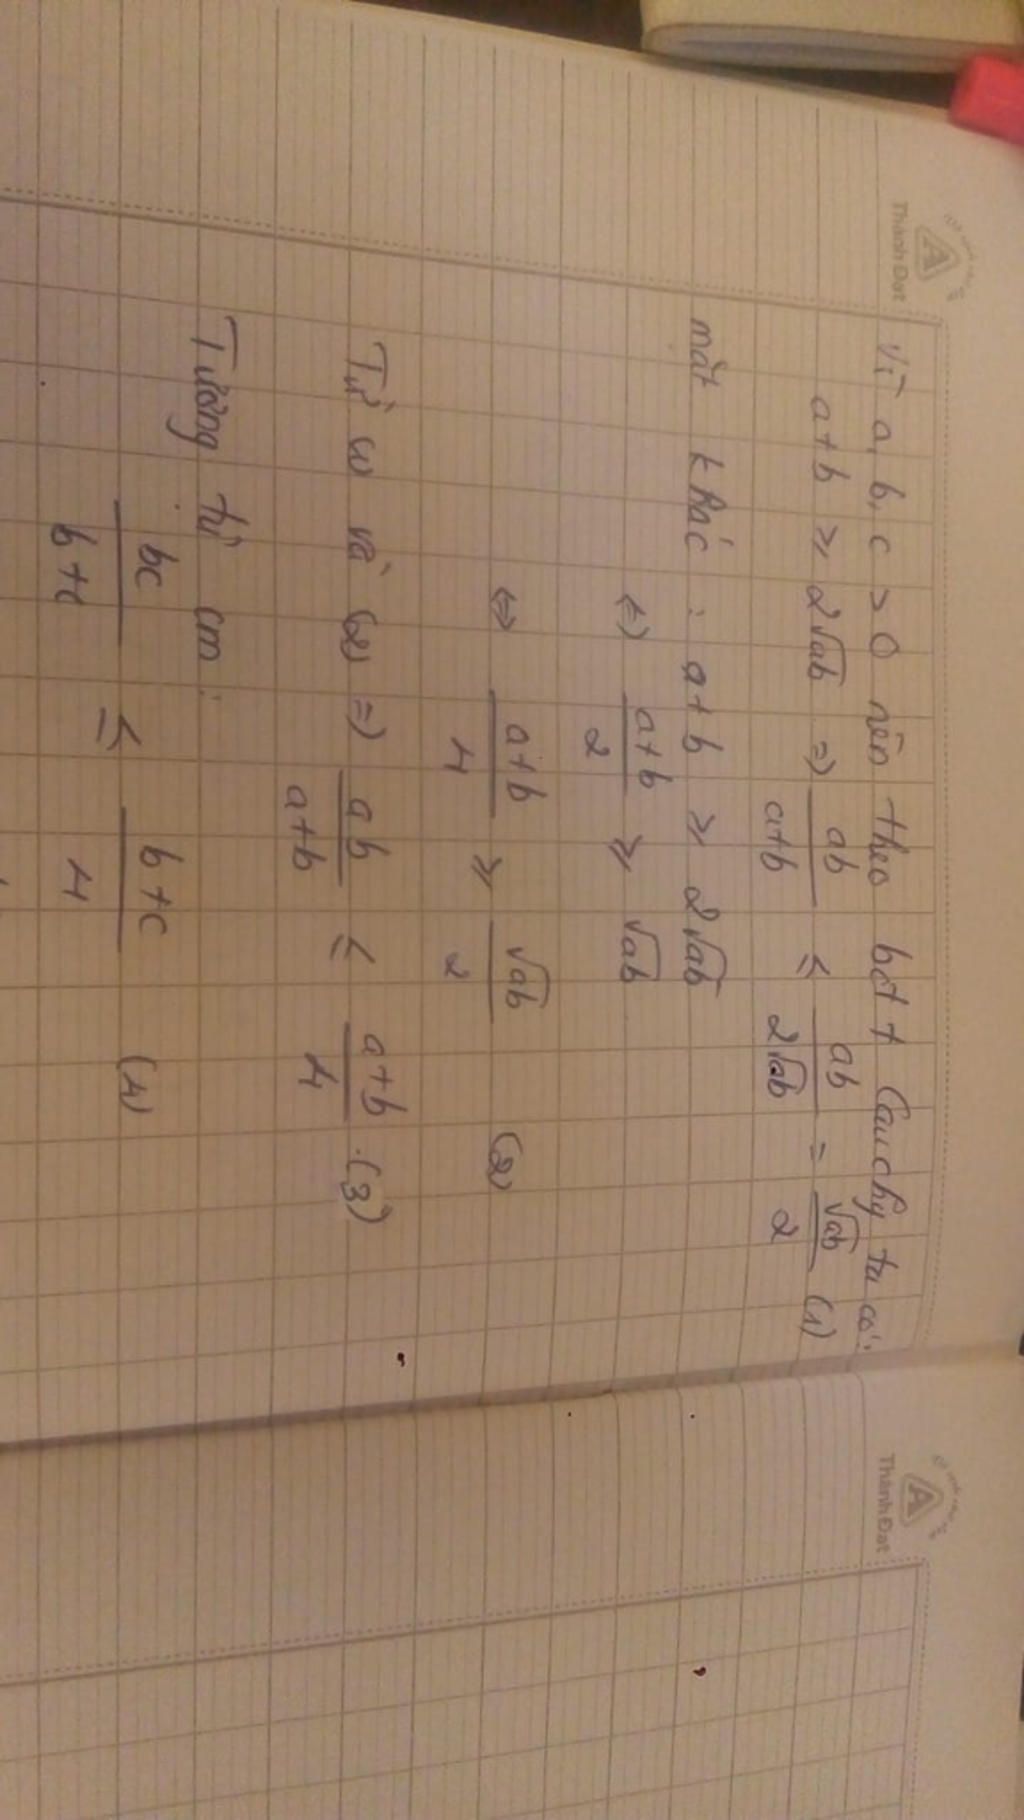 Vì a, b, c > 0 nên theo bđt Cauchy ta có:
a+b ≥ 2√ab => ab/(a+b) ≤ ab/(2√ab) = √ab/2 (1)
mặt khác : a+b ≥ 2√ab
<=> (a+b)/2 ≥ √ab
<=> (a+b)/4 ≥ √ab/2 (2)
Từ (1) và (2) => ab/(a+b) ≤ (a+b)/4 .(3)
Tương tự cm:
bc/(b+c) ≤ (b+c)/4 (4)
Thành Đạt
Thành Đạt